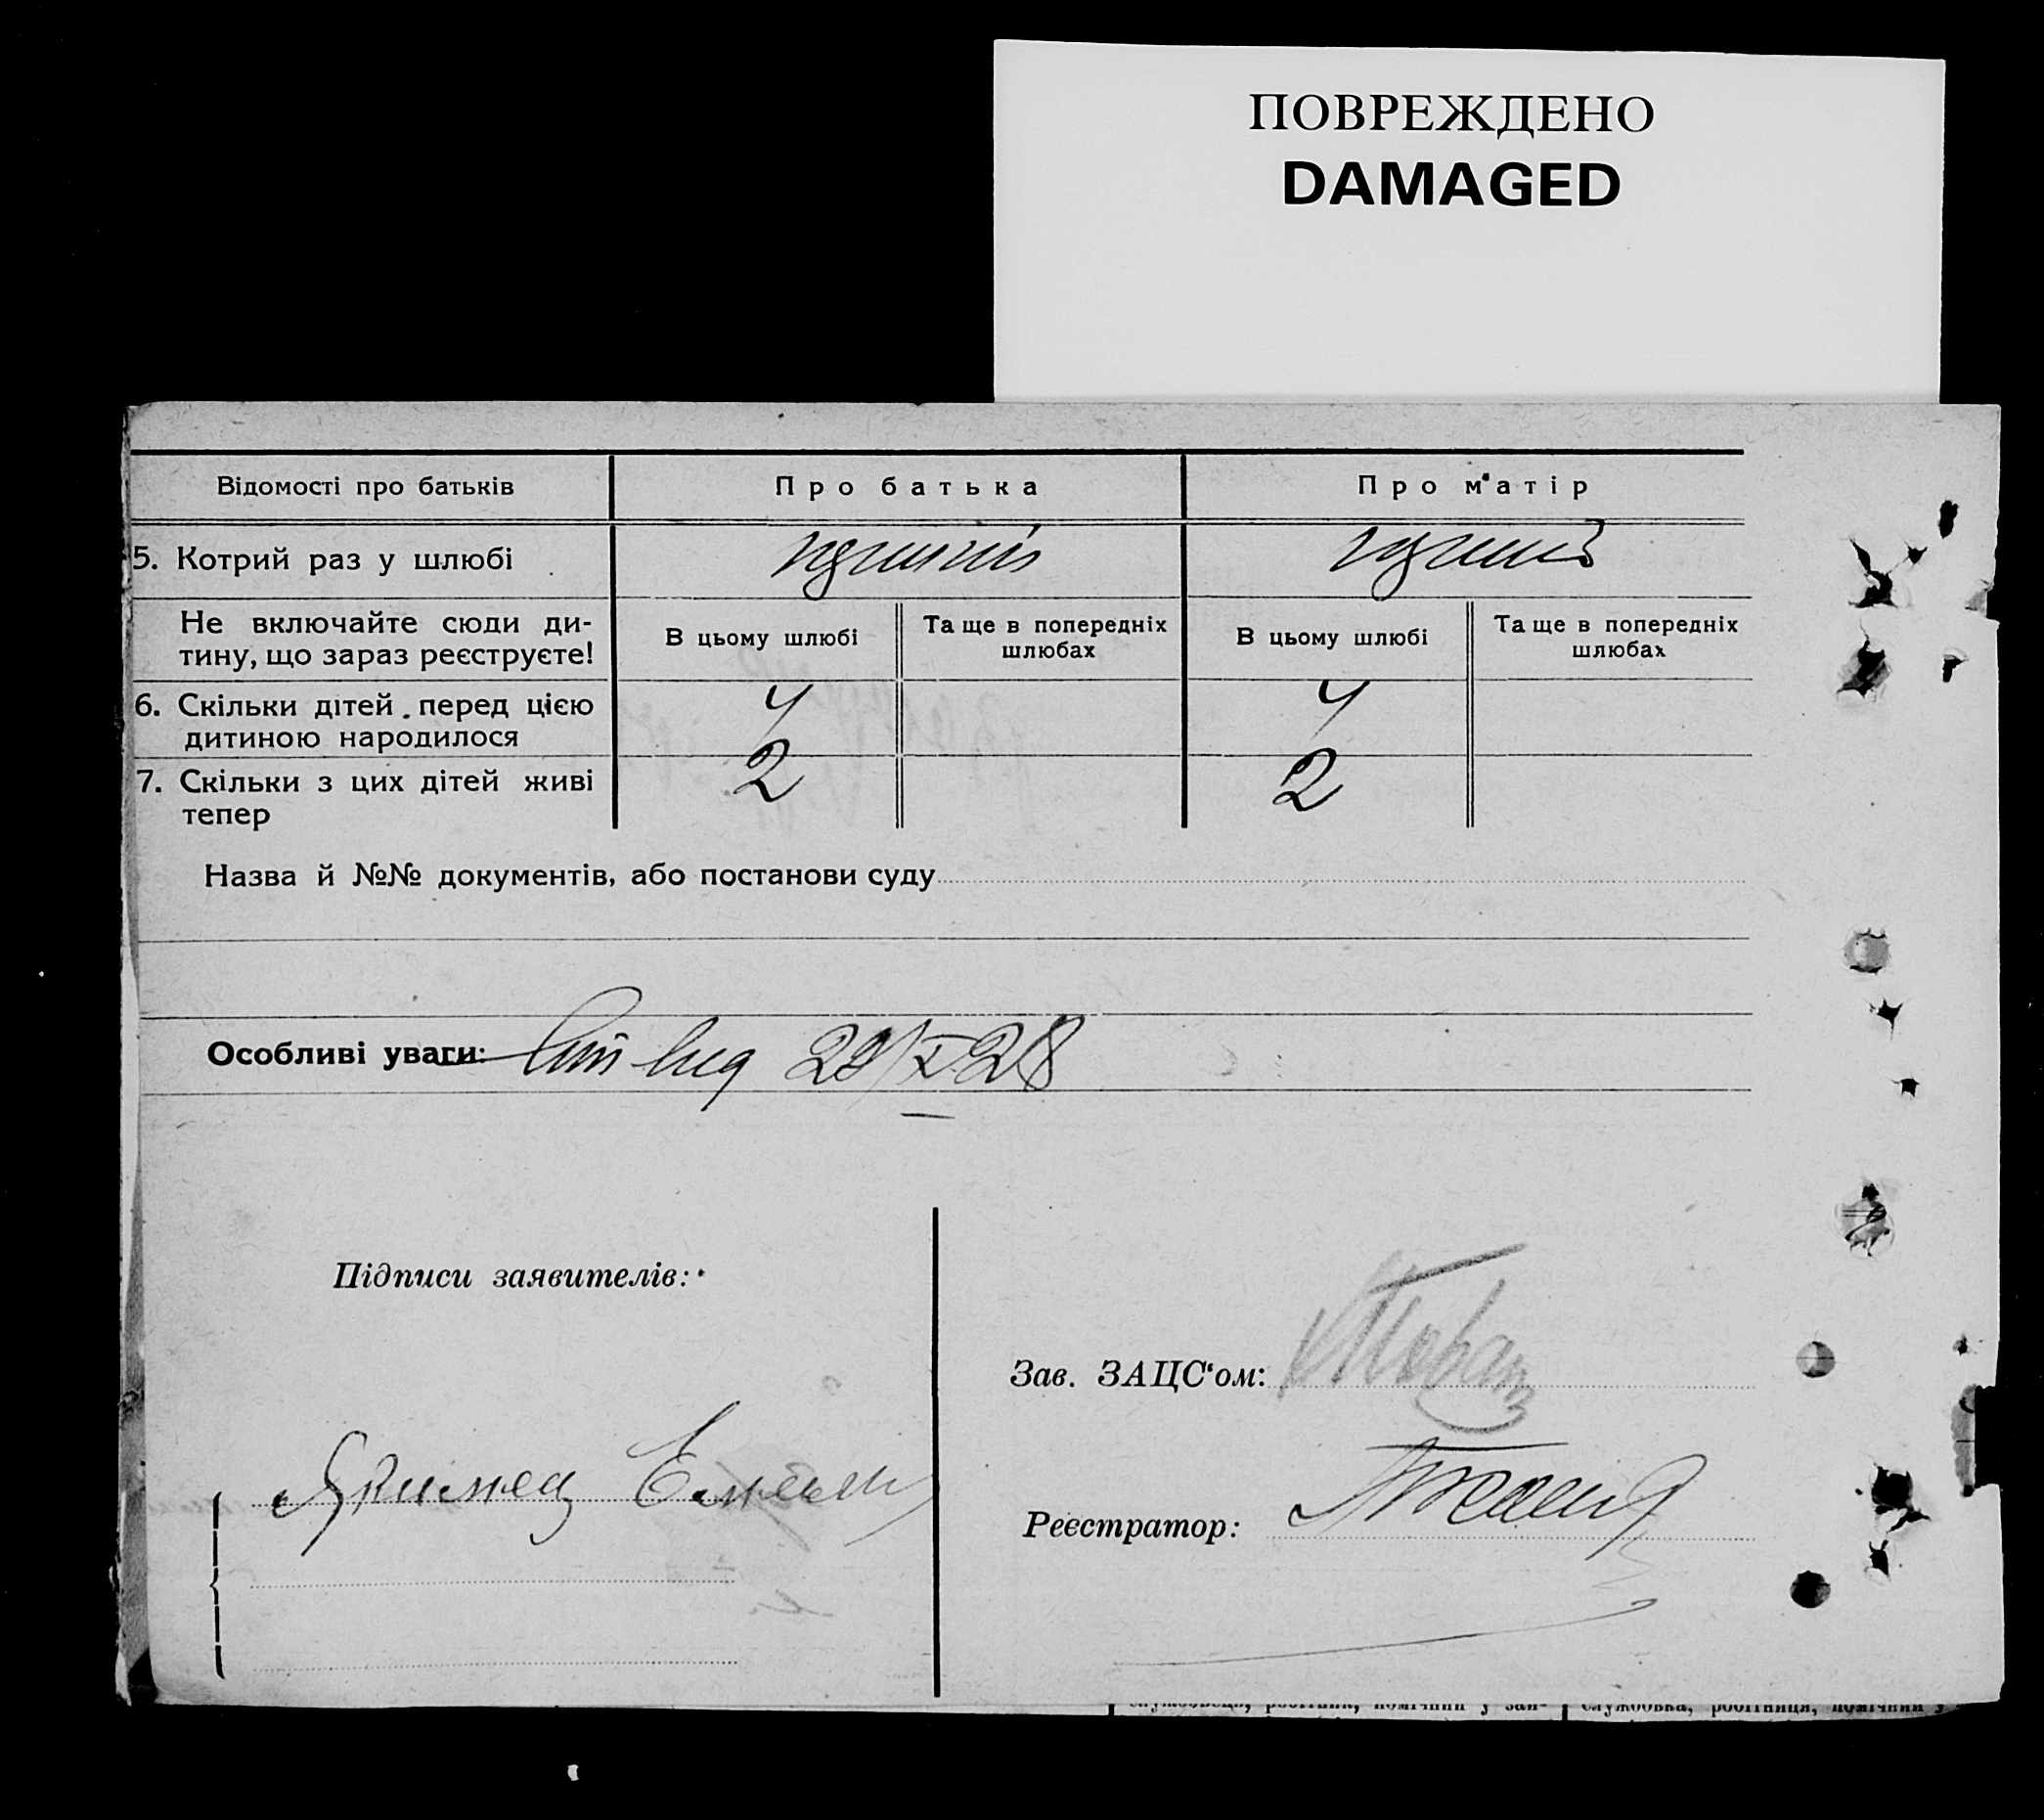 ПОВРЕЖДЕНО
DAMAGED
Відомості про батьків
Про батька
Про матір
5. Котрий раз у шлюбі
Не включайте сюди ди-
тину, що зараз реєструєте!
В цьому шлюбі
Та ще в попередніх
шлюбах
В цьому шлюбі
Та ще в попередніх
шлюбах
6. Скільки дітей перед цією
дитиною народилося
4
4
7. Скільки з цих дітей живі
тепер
2
2
Назва й №№ документів, або постанови суду
Особливі уваги:
Підписи заявителів:
Зав. ЗАЦС‘ом:
Якимец
Реєстратор: